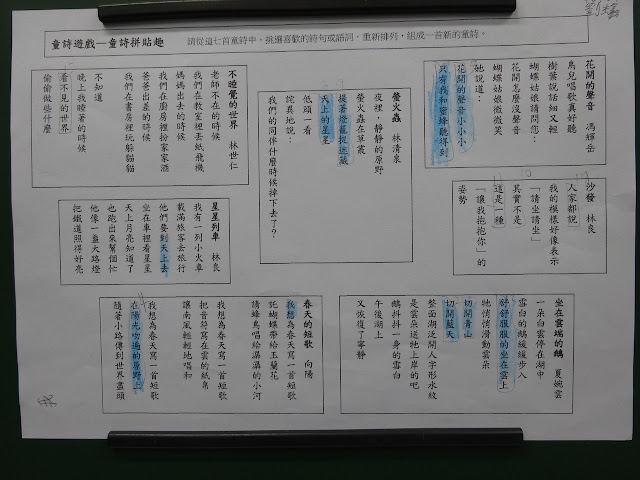 童詩遊戲—童詩拼貼趣
請從這七首童詩中，挑選喜歡的詩句或語詞，重新排列，組成一首新的童詩。
花開的聲音　馮輝岳
鳥兒唱歌真好聽
樹葉說話細又輕
蝴蝶姑娘請問您：
花開怎麼沒聲音
蝴蝶姑娘微微笑
她說道：
花開的聲音小小小
只有我和蜜蜂聽得到
螢火蟲　林清泉
夜裡，靜靜的原野
螢火蟲在草叢
提著燈籠捉迷藏
天上的星星
低頭一看
詫異地說：
我們的同伴什麼時候掉下去了？
不睡覺的世界　林世仁
老師不在的時候
我們在教室裡丟紙飛機
媽媽出去的時候
我們在廚房裡扮家家酒
爸爸出差的時候
我們在書房裡玩躲貓貓
不知道
晚上我睡著的時候
看不見的世界
偷偷做些什麼
沙發　林良
人家都說
我的模樣好像表示
「請坐請坐」
其實不是
這是一種
「讓我抱抱你」的
姿勢
星星列車　林良
我有一列小火車
載滿旅客去旅行
他們要到天上去
坐在車裡看星星
天上月亮知道了
也跑出來幫個忙
他像一盞大路燈
把鐵道照得好亮
坐在雲端的鵝　夏婉雲
一朵白雲停在湖中
雪白的鵝緩緩步入
舒舒服服的坐在雲上
牠悄悄滑動雲朵
切開青山
切開藍天
整面湖泛開人字形水紋
是雲朵送牠上岸的吧
鵝抖一身的雪白
午後湖上
又恢復了寧靜
春天的短歌　向陽
我想為春天寫一首短歌
託蝴蝶帶給玉蘭花
請蜂鳥唱給潺潺的小河
我想為春天寫一首短歌
把音符寫在雲的紙帛
讓南風輕輕地唱和
我想為春天寫一首短歌
在陽光吻遍的原野上
隨著小路傳到世界盡頭